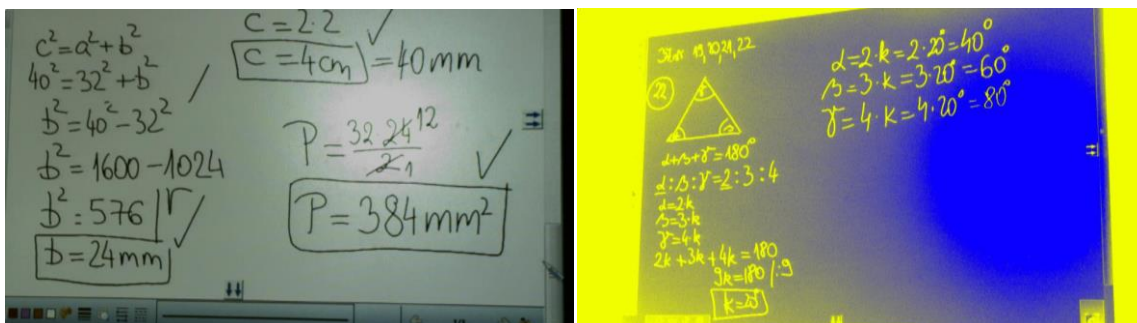 c² = a² + b²
40² = 32² + b²
b² = 40² - 32²
b² = 1600 - 1024
b² = 576 / √
b = 24mm
c = 2·2
c = 4cm = 40mm
P = 32 24 12 / 2 1
P = 384mm²
19, 20, 21, 22
22
γ
α + β + γ = 180°
α : β : γ = 2 : 3 : 4
α = 2·k
β = 3·k
γ = 4·k
2k + 3k + 4k = 180
9k = 180 /:9
k = 20°
α = 2·k = 2·20° = 40°
β = 3·k = 3·20° = 60°
γ = 4·k = 4·20° = 80°